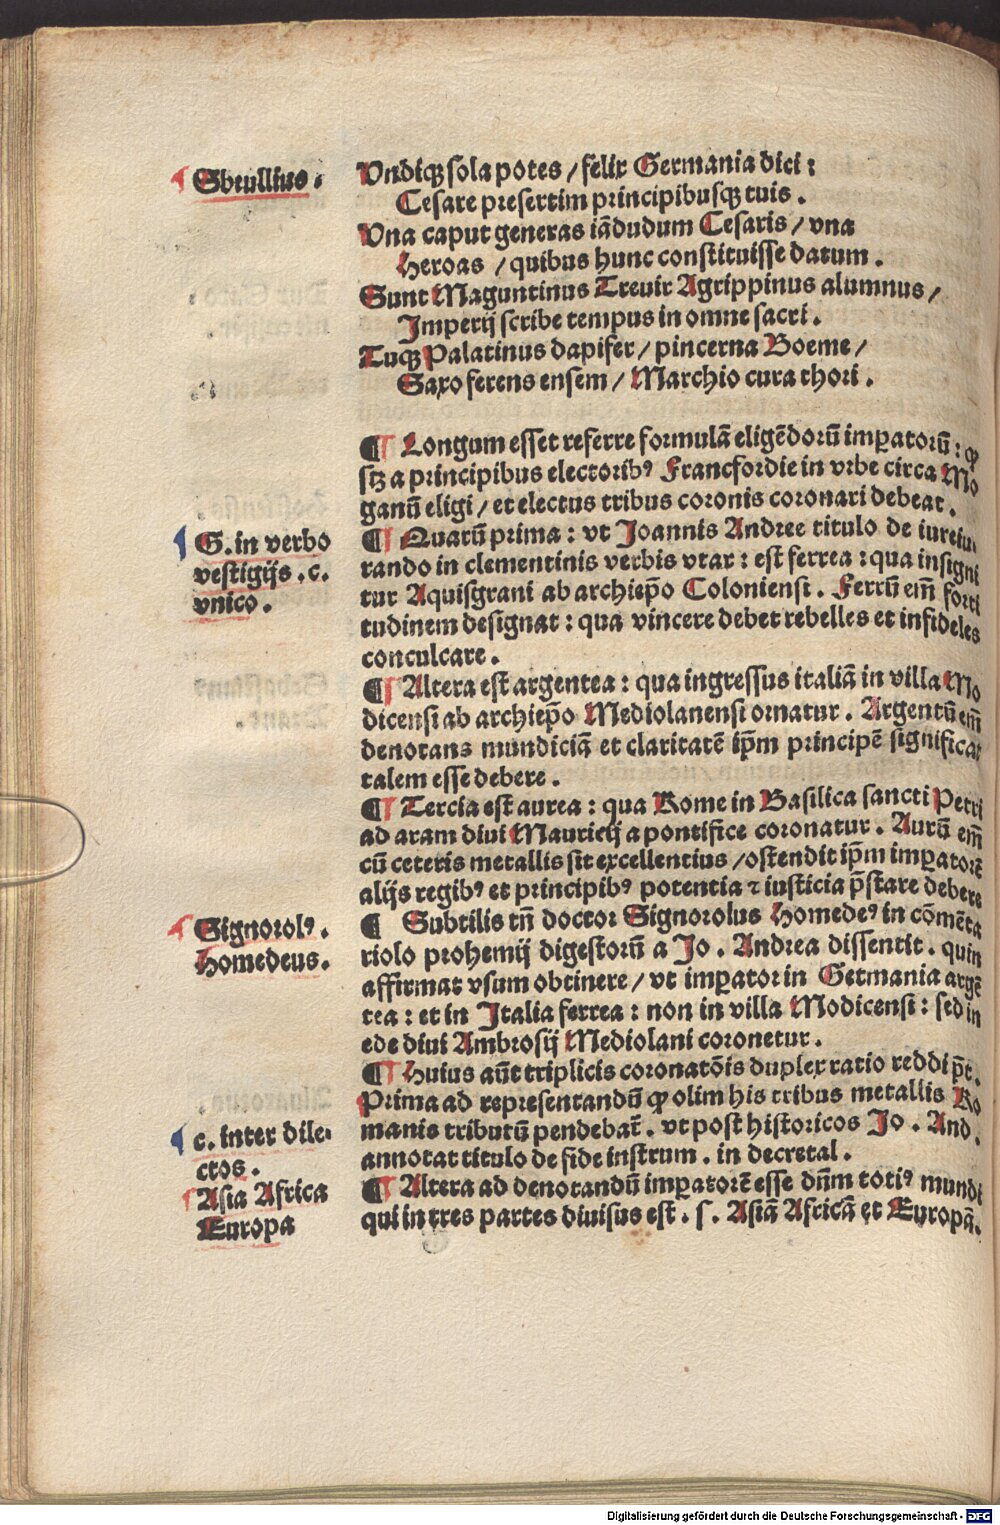 Sbrullius.
Vndiqꝫ sola potes / felix Germania dici :
Cesare presertim principibusqꝫ tuis .
Vna caput generas iādudum Cesaris / vna
Heroas / quibus hunc constituisse datum .
Sunt Maguntinus Treuir Agrippinus alumnus /
Imperij scribe tempus in omne sacri .
Tuqꝫ Palatinus dapifer / pincerna Boeme /
Saxo ferens ensem / Marchio cura thori .
¶ Longum esset referre formulā eligēdorū imꝑatorū : ꝙ
sꝫ a principibus electoribꝰ Francfordie in vrbe circa Mo
ganū eligi / et electus tribus coronis coronari debeat .
G. in verbo
vestigijs . c.
vnico .
¶ Quarū prima : vt Joannis Andree titulo de iureiu⸗
rando in clementinis verbis vtar : est ferrea : qua insigni
tur Aquisgrani ab archiep̄o Coloniensi . Ferrū em̄ forti
tudinem designat : qua vincere debet rebelles et infideles
conculcare .
¶ Altera est argentea : qua ingressus italiā in villa Mo
dicensi ab archiep̄o Mediolanensi ornatur . Argentū em̄
denotans mundiciā et claritatē ip̄m principē significat
talem esse debere .
¶ Tercia est aurea : qua Rome in Basilica sancti Petri
ad aram diui Mauricij a pontifice coronatur . Aurū em̄
cū ceteris metallis sit excellentius / ostendit ip̄m imꝑatorē
alijs regibꝰ et principibꝰ potentia ⁊ iusticia p̄stare debere
Signorolꝰ .
Homedeus .
¶ Subtilis tn̄ doctor Signorolus Homedeꝰ in cōmēta
riolo prohemij digestorū a Jo . Andrea dissentit . quin
affirmat vsum obtinere / vt imꝑator in Germania argē
tea : et in Italia ferrea : non in villa Modicensi : sed in
ede diui Ambrosij Mediolani coronetur .
¶ Huius aūt triplicis coronatōis duplex ratio reddi p̄t .
Prima ad representandū ꝙ olim his tribus metallis Ro
manis tributū pendebat̄ . vt post historicos Jo . And .
annotat titulo de fide instrum . in decretal .
c. inter dile⸗
ctos .
Asia Africa
Europa
¶ Altera ad denotandū imꝑatorē esse dn̄m totiꝰ mundi
qui in tres partes diuisus est . s . Asiā Africā et Europā .
Digitalisierung gefördert durch die Deutsche Forschungsgemeinschaft - DFG